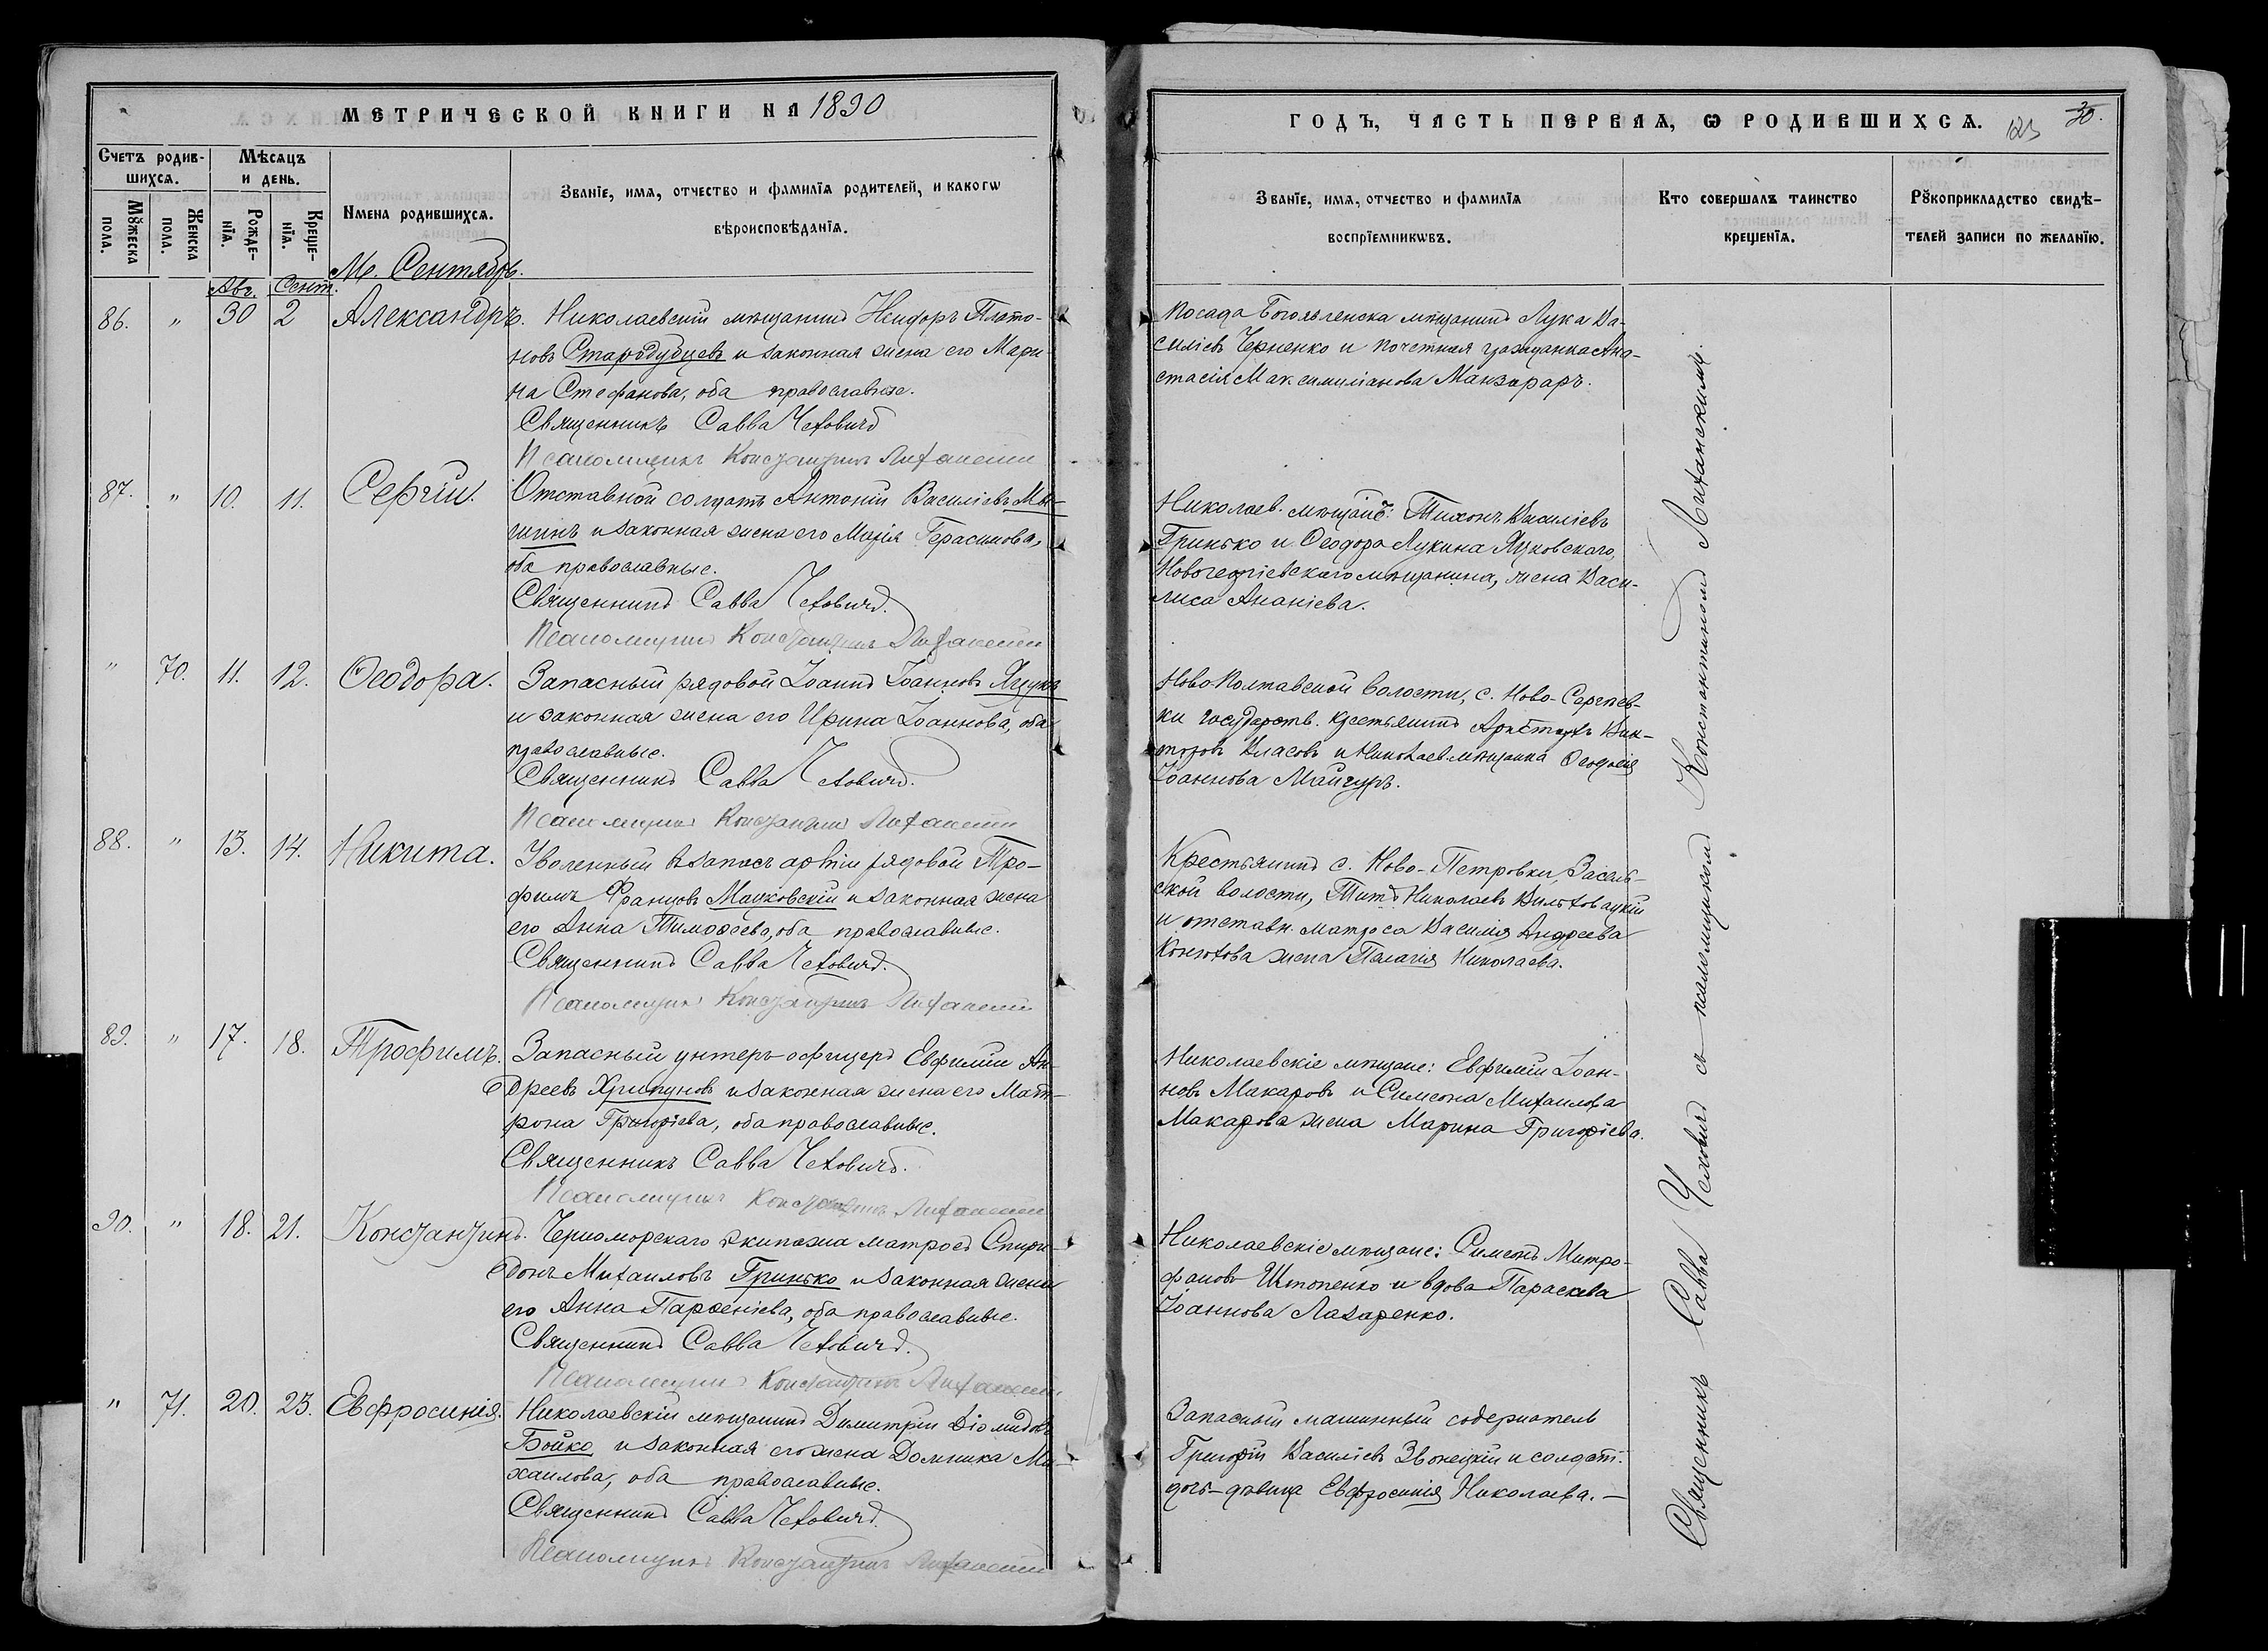 МЕТРИЧЕСКОЙ КНИГИ НА 1890
Счетъ родив-
шихся.
Мѣсяцъ
и день.
Мꙋжеска
пола.
Женска
пола.
Рожде-
нїя.
Креще-
нїя.
Имена родившихся.
Званїе, имя, отчество и фамилїя родителей, и какогѡ
вѣроисповѣданїя.
М. Сентябрь.
Авг. Сент.
86. " 30 2 Александръ. Николаевскій мѣщанинъ Исидоръ Плато-
новъ Стародубцевъ и законная жена его Мари-
на Стефанова, оба православные.
Священникъ Савва Чехович
Псаломщикъ Константинъ Лиханскій
87. " 10. 11. Сергій. Отставной солдатъ Антоній Василіевъ Ми-
шинъ и законная жена его Марія Герасимова,
оба православные.
Священникъ Савва Чеховичъ.
Псаломщикъ Константинъ Лиханскій
" 70. 11. 12. Ѳеодора. Запасный рядовой Іоаннъ Іоанновъ Яцукъ
и законная жена его Ирина Іоаннова, оба
православные.
Священникъ Савва Чеховичъ.
Псаломщикъ Константинъ Лиханскій
88. " 13. 14. Никита. Уволенный въ запасъ арміи рядовой Тро-
фимъ Францовъ Мацковскій и законная жена
его Анна Тимоѳеева, оба православные.
Священникъ Савва Чеховичъ.
Псаломщикъ Константинъ Лиханскій
89. " 17. 18. Трофимъ. Запасный унтеръ-офицеръ Евфимій Ан-
дреевъ Хрипуновъ и законная жена его Мат-
рона Григоріева, оба православные.
Священникъ Савва Чеховичъ.
Псаломщикъ Константинъ Лиханскій
90. " 18. 21. Константинъ. Черноморскаго экипажа матросъ Спири-
донъ Михаиловъ Гринько и законная жена
его Анна Парѳеніева, оба православные.
Священникъ Савва Чеховичъ.
Псаломщикъ Константинъ Лиханскій
" 71. 20. 23. Евфросинія. Николаевскій мѣщанинъ Димитрій Діомидовъ
Бойко и законная его жена Домника Ми-
хаилова, оба православные.
Священникъ Савва Чеховичъ.
Псаломщикъ Константинъ Лиханскій
ГОДЪ, ЧАСТЬ ПЕРВАЯ, Ѡ РОДИВШИХСЯ. 123 30.
Званїе, имя, отчество и фамилїя
воспрїемникѡвъ.
Кто совершалъ таинство
крещенїя.
Рꙋкоприкладство свидѣ-
телей записи по желанїю.
Посада Богоявленска мѣщанинъ Лука Ва-
силіевъ Черненко и почетная гражданка Ана-
стасія Максимиліанова Манзараръ.
Николаев. мѣщане: Тихонъ Василіевъ
Гринько и Ѳеодора Лукина Яцковскаго,
Новогеоргіевскаго мѣщанина, жена Васи-
лиса Ананіева.
Ново-Полтавской волости, с. Ново-Сергіев-
ки государств. крестьянинъ Аристархъ Вик-
торовъ Власовъ и Николаев. мѣщанка Ѳеодосія
Іоаннова Майгуръ.
Крестьянинъ с. Ново-Петровки, Засель-
ской волости, Титъ Николаевъ Вильховацкій
и отставн. матроса Василія Андреева
Конюхова жена Пелагія Николаева.
Николаевскіе мѣщане: Евфимій Іоан-
новъ Макаровъ и Симеона Михаилова
Макарова жена Марина Григоріева.
Николаевскіе мѣщане: Симеонъ Митро-
фановъ Штопенко и вдова Параскева
Іоаннова Лазаренко.
Запасный машинный содержатель
Григорій Василіевъ Звонецкій и солдат.
дочь-дѣвица Евфросинія Николаева. —
Священникъ Савва Чеховичъ съ псаломщикомъ Константиномъ Лиханскимъ.